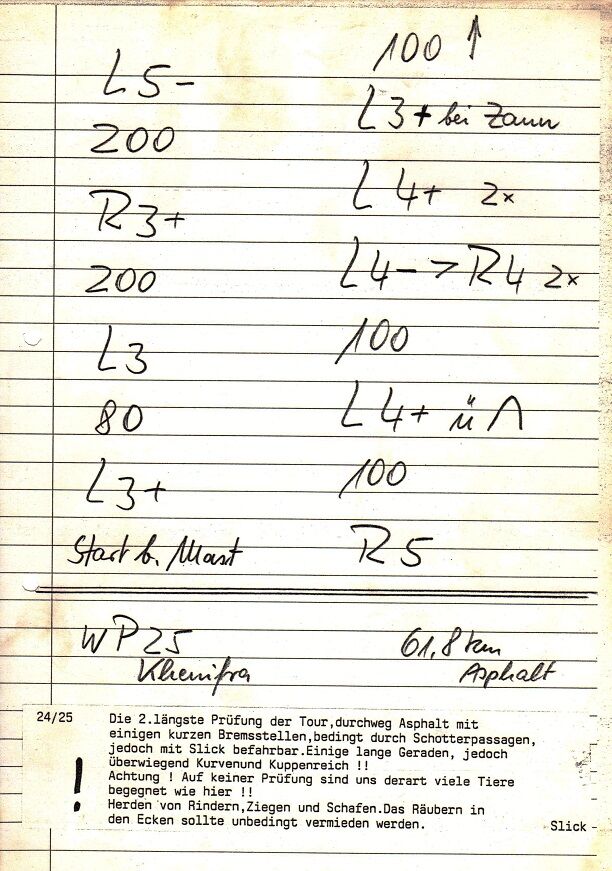 L5-
200
R3+
200
L3
80
L3+
Start b. Mast
100 ↑
L3+ bei Zaun
L4+ 2x
L4- > R4 2x
100
L4+ ü ∩
100
R5
WP25
Khenifra
61,8 km
Asphalt
24/25
!
Die 2.längste Prüfung der Tour,durchweg Asphalt mit
einigen kurzen Bremsstellen,bedingt durch Schotterpassagen,
jedoch mit Slick befahrbar.Einige lange Geraden, jedoch
überwiegend Kurvenund Kuppenreich !!
Achtung ! Auf keiner Prüfung sind uns derart viele Tiere
begegnet wie hier !!
Herden von Rindern,Ziegen und Schafen.Das Räubern in
den Ecken sollte unbedingt vermieden werden.
Slick